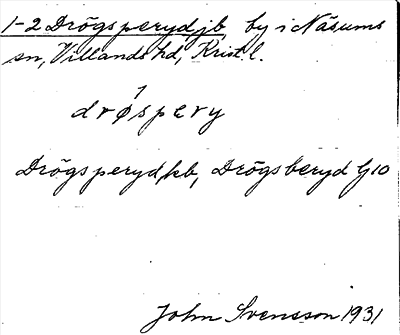 1-2 Drögsperyd jb, by i Näsums
sn, Villands hd, Krist. l.
1
drøspery
Drögsperyd kb, Drögsberyd G10
John Svensson 1931